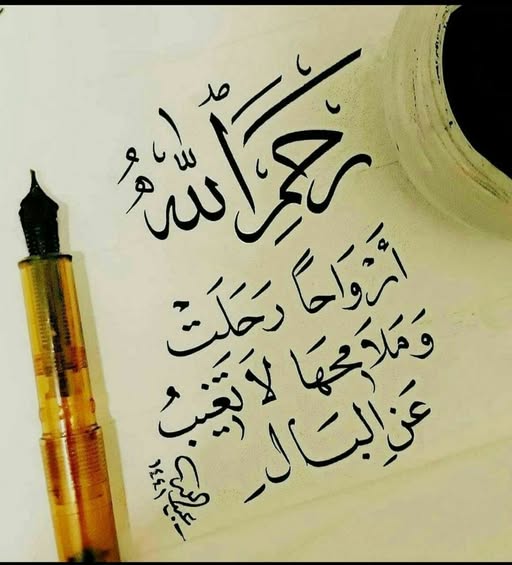 رَحِمَ اللّٰهُ
أَرْوَاحًا رَحَلَتْ
وَمَلَامِحُهَا لَا تَغِيبُ
عَنِ البَالِ
١٤٤١